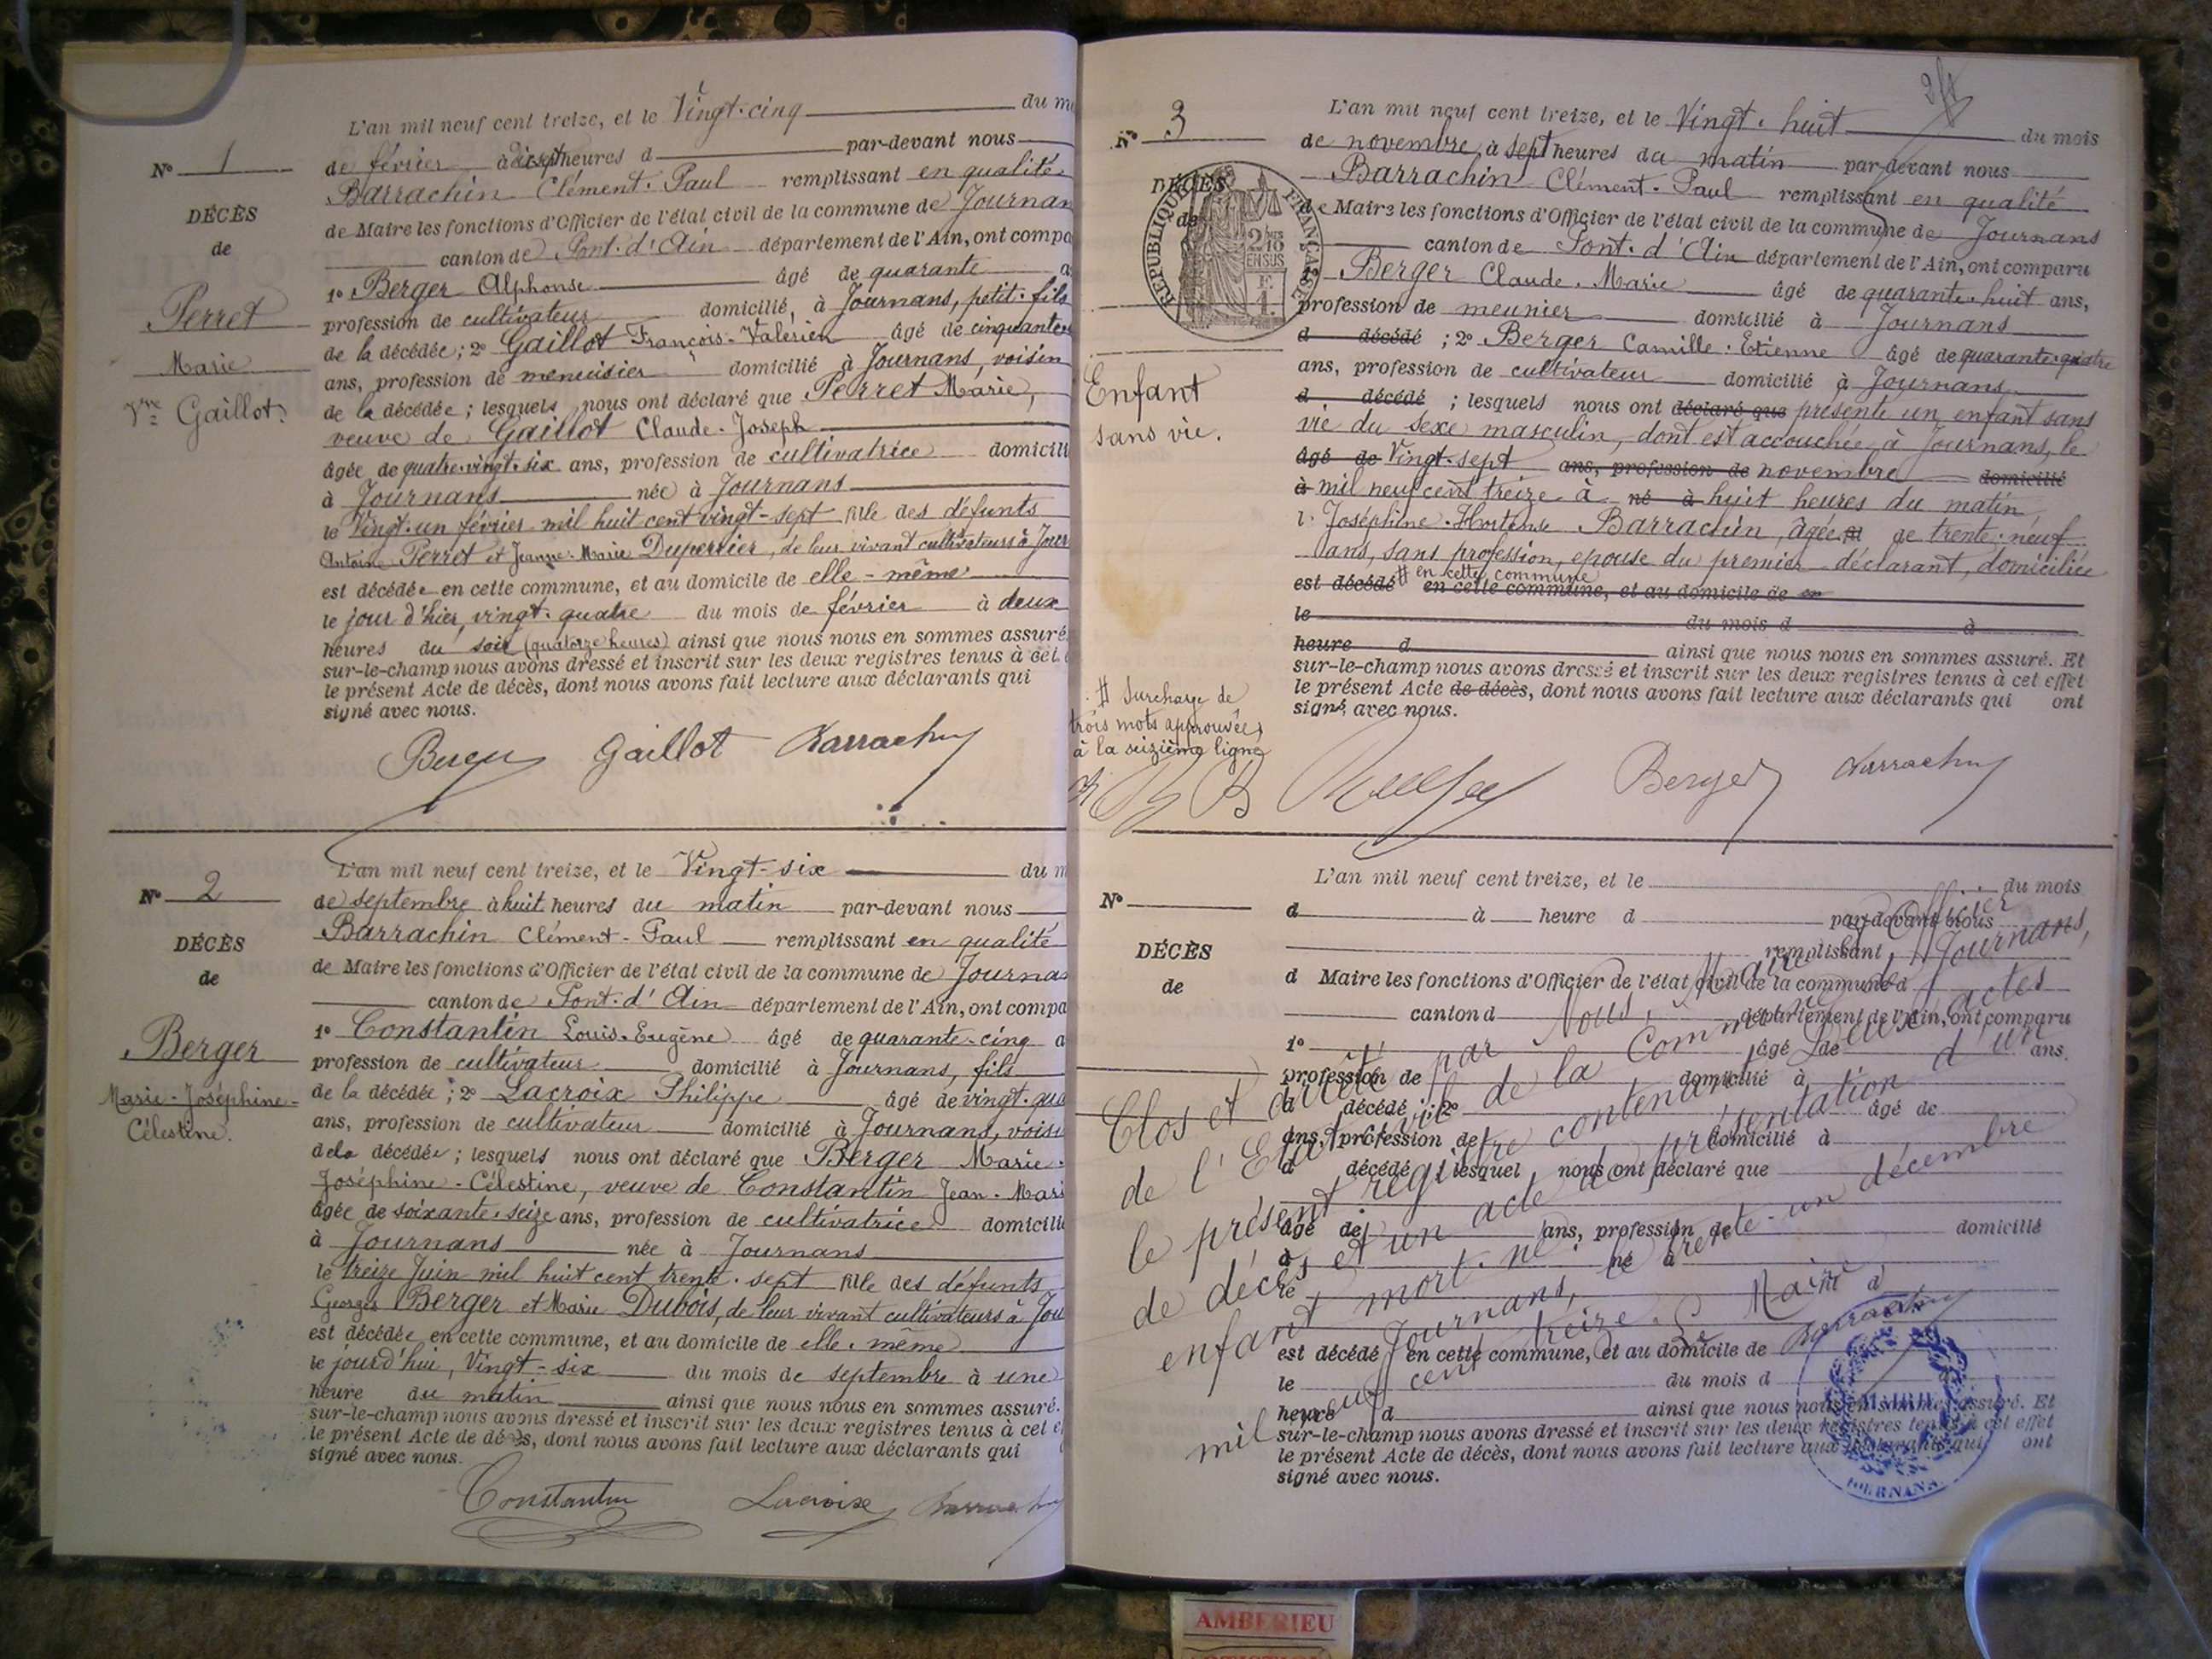 L'an mil neuf cent treize, et le Vingt-cinq du m
N° 1
de février à dixsept heures d par-devant nous
Barrachin Clément-Paul remplissant en qualité
DÉCÈS
de Maire les fonctions d'Officier de l'état civil de la commune de Journan
de
canton de Pont-d'Ain département de l'Ain, ont compa
1° Berger Alphonse âgé de quarante a
Perret
profession de cultivateur domicilié, à Journans, petit-fils
de la décédée; 2° Gaillot François-Valerien âgé de cinquante
Marie
ans, profession de menuisier domicilié à Journans, voisin
Vve Gaillot
de la décédée; lesquels nous ont déclaré que Perret Marie,
veuve de Gaillot Claude-Joseph
âgée de quatre-vingt-six ans, profession de cultivatrice domicili
à Journans née à Journans
le Vingt-un février mil huit cent vingt-sept fille des défunts
Antoine Perret et Jeanne-Marie Duperrier, de leur vivant cultivateurs à Jour
est décédée en cette commune, et au domicile de elle-même
le jour d'hier, vingt-quatre du mois de février à deux
heures du soir (quatorze heures) ainsi que nous nous en sommes assuré.
sur-le-champ nous avons dressé et inscrit sur les deux registres tenus à cet
le présent Acte de décès, dont nous avons fait lecture aux déclarants qui
signé avec nous.
Berger Gaillot Barrachin
L'an mil neuf cent treize, et le Vingt-six du m
N° 2
de septembre à huit heures du matin par-devant nous
Barrachin Clément-Paul remplissant en qualité
DÉCÈS
de Maire les fonctions d'Officier de l'état civil de la commune de Journa
de
canton de Pont-d'Ain département de l'Ain, ont compa
1° Constantin Louis-Eugène âgé de quarante-cinq a
Berger
profession de cultivateur domicilié à Journans, fils
Marie-Joséphine-
de la décédée; 2° Lacroix Philippe âgé de vingt-qua
Célestine.
ans, profession de cultivateur domicilié à Journans, voisi
de la décédée; lesquels nous ont déclaré que Berger Marie-
Joséphine-Célestine, veuve de Constantin Jean-Mari
âgée de soixante-seize ans, profession de cultivatrice domicili
à Journans née à Journans
le treize Juin mil huit cent trente-sept fille des défunts
Georges Berger et Marie Dubois, de leur vivant cultivateurs à Jou
est décédée en cette commune, et au domicile de elle-même
le jourd'hui, Vingt-six du mois de septembre à une
heure du matin ainsi que nous nous en sommes assuré.
sur-le-champ nous avons dressé et inscrit sur les deux registres tenus à cet e
le présent Acte de décès, dont nous avons fait lecture aux déclarants qui
signé avec nous.
Constantin Lacroix Barrachin
L'an mil neuf cent treize, et le Vingt-huit du mois
N° 3
de novembre, à sept heures du matin par-devant nous
Barrachin Clément-Paul remplissant en qualité
DÉCÈS
de
RÉPUBLIQUE FRANÇAISE
2/10 EN SUS
de Maire les fonctions d'Officier de l'état civil de la commune de Journans
canton de Pont-d'Ain département de l'Ain, ont comparu
1° Berger Claude-Marie âgé de quarante-huit ans,
profession de meunier domicilié à Journans
d décédé; 2° Berger Camille-Etienne âgé de quarante-quatre
Enfant
sans vie.
ans, profession de cultivateur domicilié à Journans
d décédé; lesquels nous ont déclaré que présenté un enfant sans
vie du sexe masculin, dont est accouchée à Journans, le
âgé de Vingt-sept ans, profession de novembre domicilié
à mil neuf cent treize à né à huit heures du matin
Joséphine-Hortense Barrachin, âgée de trente-neuf
ans, sans profession, épouse du premier déclarant, domiciliée
# en cette commune
est décédé en cette commune, et au domicile de
le du mois d à
heure d ainsi que nous nous en sommes assuré. Et
sur-le-champ nous avons dressé et inscrit sur les deux registres tenus à cet effet
le présent Acte de décès, dont nous avons fait lecture aux déclarants qui ont
signé avec nous.
# Surcharge de
trois mots approuvée,
à la seizième ligne
Berger Barrachin
L'an mil neuf cent treize, et le du mois
N°
d à heure d par-devant nous
remplissant
DÉCÈS
de
d Maire les fonctions d'Officier de l'état civil de la commune d
canton d département de l'Ain, ont comparu
1° âgé de ans,
profession de domicilié à
d décédé; 2° âgé de
ans, profession de domicilié à
d décédé; lesquel nous ont déclaré que
âgé de ans, profession de domicilié
à né à
le
est décédé en cette commune, et au domicile de
le du mois d
heure d ainsi que nous nous en sommes assuré. Et
sur-le-champ nous avons dressé et inscrit sur les deux registres tenus à cet effet
le présent Acte de décès, dont nous avons fait lecture aux déclarants qui ont
signé avec nous.
Clos et arrêté par Nous, Maire, Officier
de l'Etat civil de la Commune de Journans,
le présent registre contenant deux actes
de décès et un acte de présentation d'un
enfant mort-né.
Journans, le trente-un décembre
mil neuf cent treize.
Le Maire
Barrachin
MAIRIE
JOURNANS
AMBERIEU